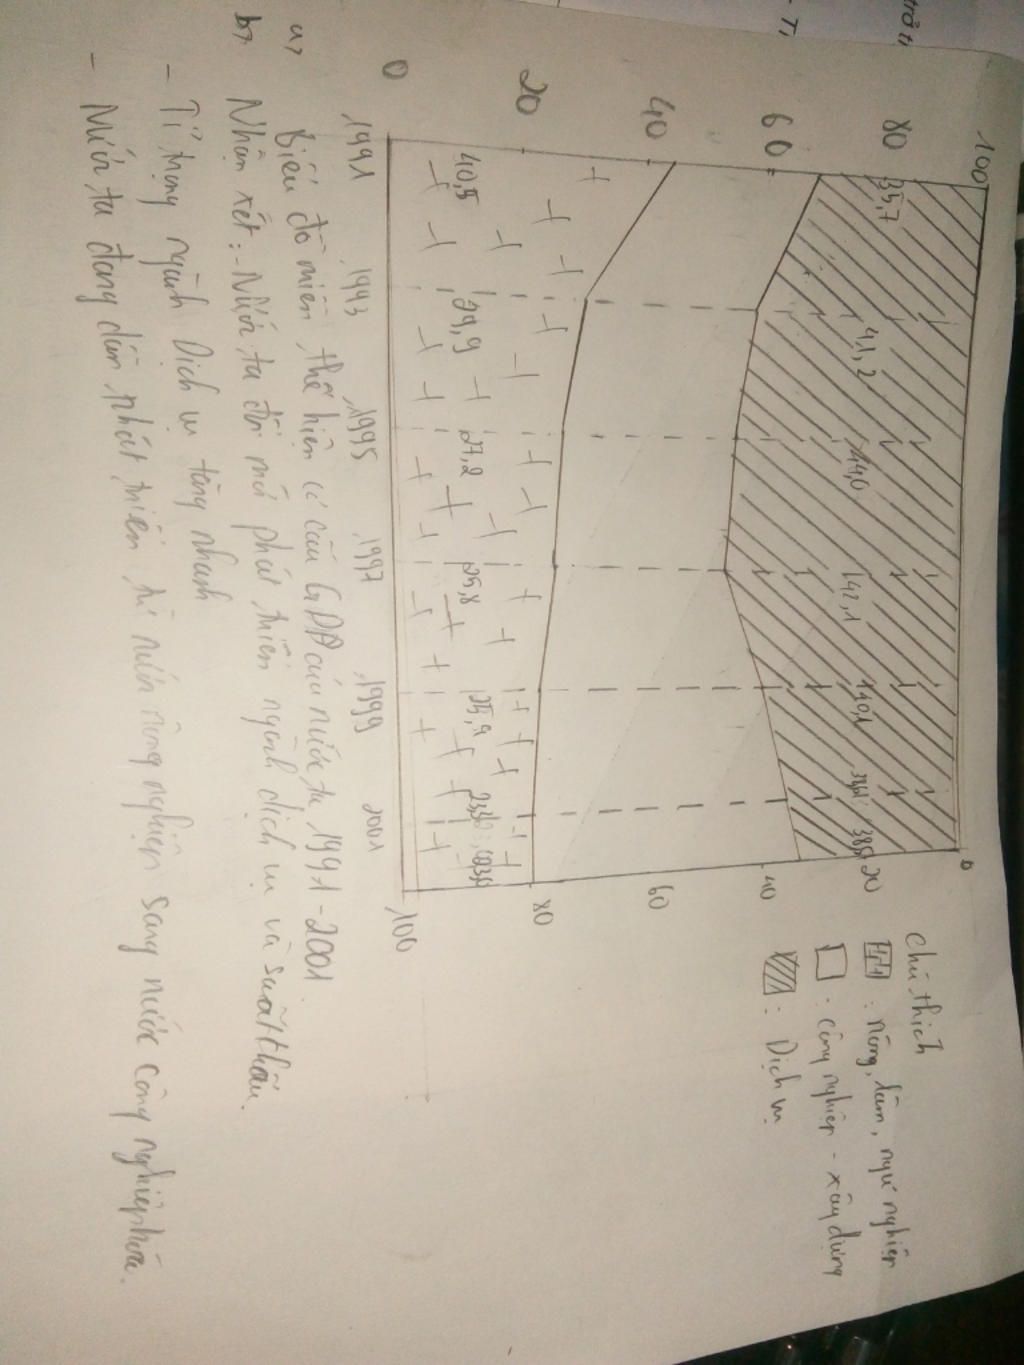 100
80
60
40
20
0
35,7
41,2
44,0
42,1
40,1
38,6
38,5
40,5
29,9
27,2
25,8
25,4
23,3
1991
1993
1995
1997
1999
2001
0
20
40
60
80
100
chú thích
: nông, lâm, ngư nghiệp
: công nghiệp - xây dựng
: Dịch vụ
a, Biểu đồ miền thể hiện cơ cấu GDP của nước ta 1991-2001
b, Nhận xét: - Nước ta đổi mới phát triển ngành dịch vụ và
- Tỉ trọng ngành Dịch vụ tăng nhanh
- Nước ta đang dần phát triển từ nước nông nghiệp sang nước công nghiệp hóa.